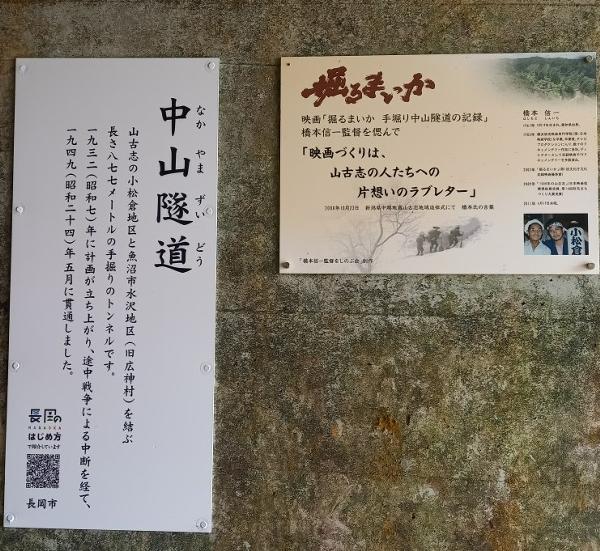 中山隧道
なか やま ずい どう
山古志の小松倉地区と魚沼市水沢地区（旧広神村）を結ぶ
長さ八七七メートルの手掘りのトンネルです。
一九三二（昭和七）年に計画が立ち上がり、途中戦争による中断を経て、
一九四九（昭和二十四）年五月に貫通しました。
長岡の
NAGAOKA
はじめ方
で紹介しています
長岡市
掘るまいか
映画「掘るまいか 手掘り中山隧道の記録」
橋本信一監督を偲んで
「映画づくりは、
山古志の人たちへの
片想いのラブレター」
「橋本信一監督をしのぶ会」制作
橋本 信一
はしもと しんいち
小松倉